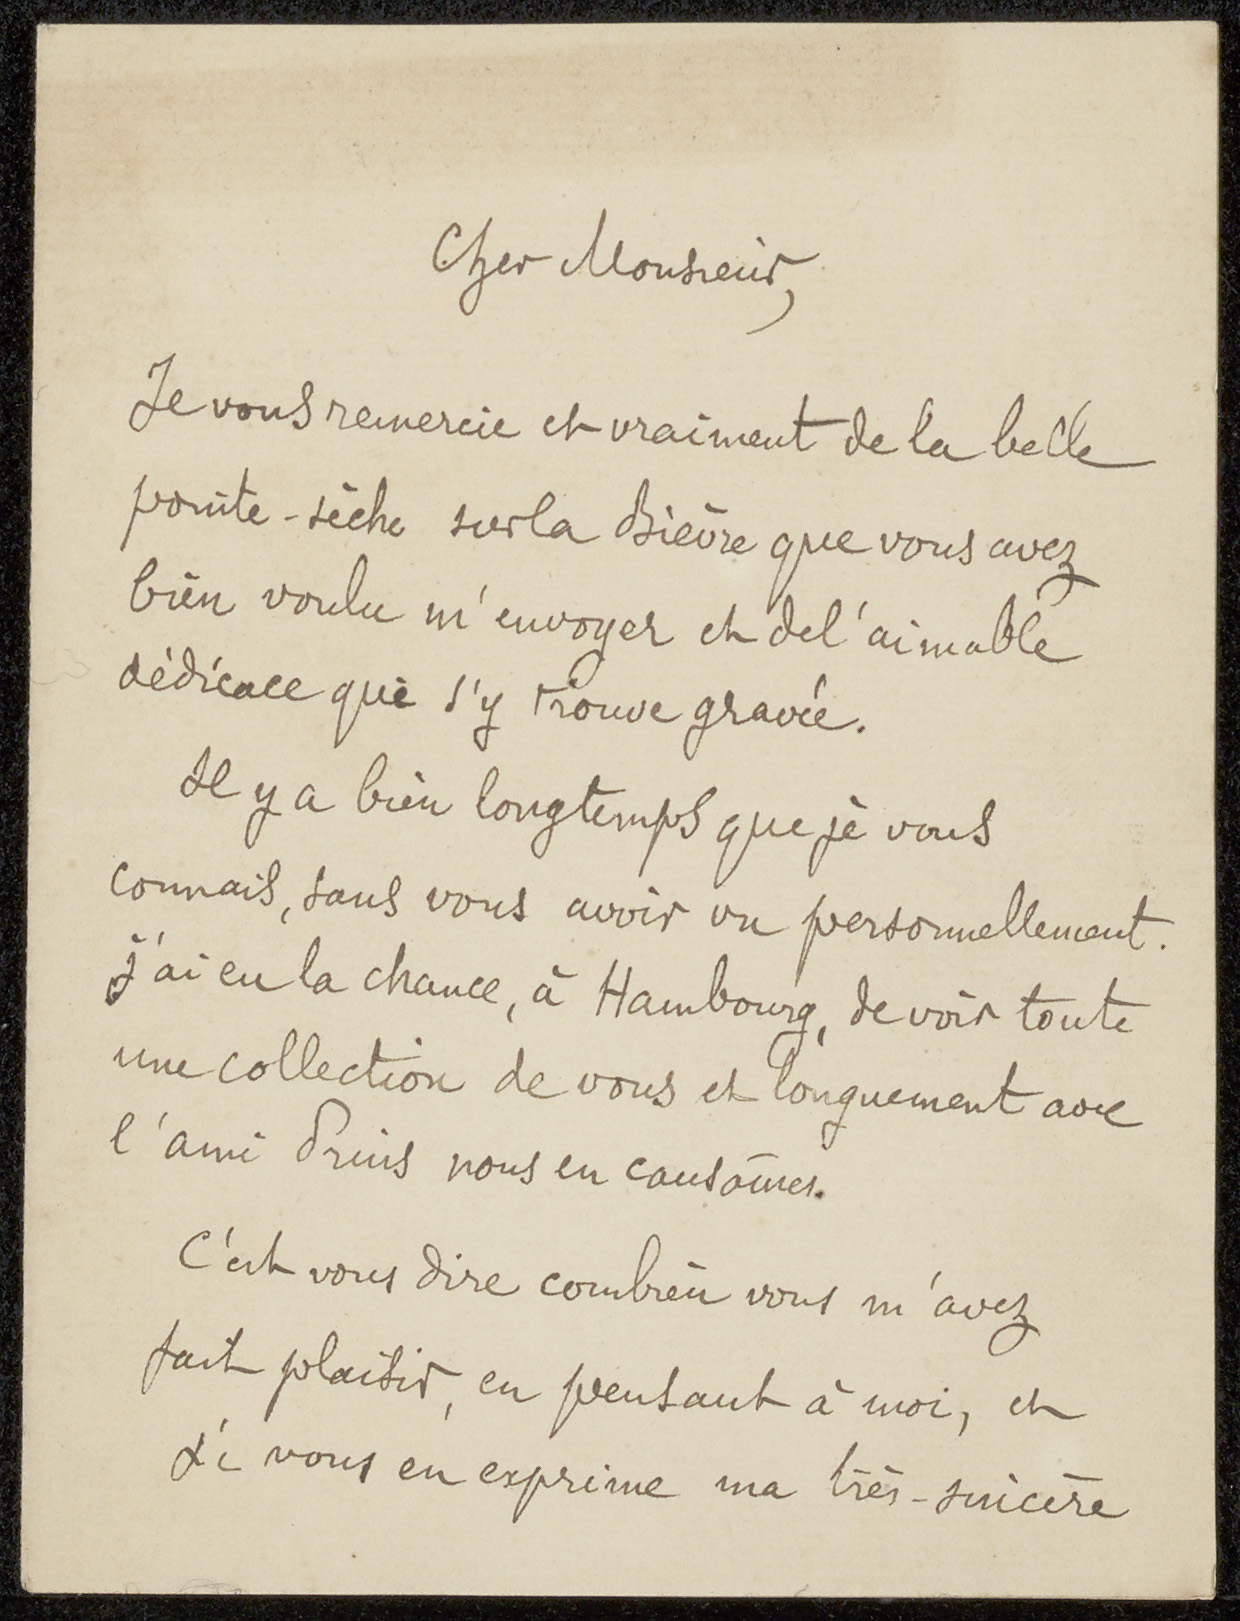 Cher Monsieur,
Je vous remercie et vraiment de la belle
pointe-sèche sur la Bièvre que vous avez
bien voulu m'envoyer et de l'aimable
dédicace qui s'y trouve gravée.
Il y a bien longtemps que je vous
connais, sans vous avoir vu personnellement.
j'ai eu la chance, à Hambourg, de voir toute
une collection de vous et longuement avec
l'ami nous en causâmes.
C'est vous dire combien vous m'avez
fait plaisir, en pensant à moi, et
je vous en exprime ma très-sincère